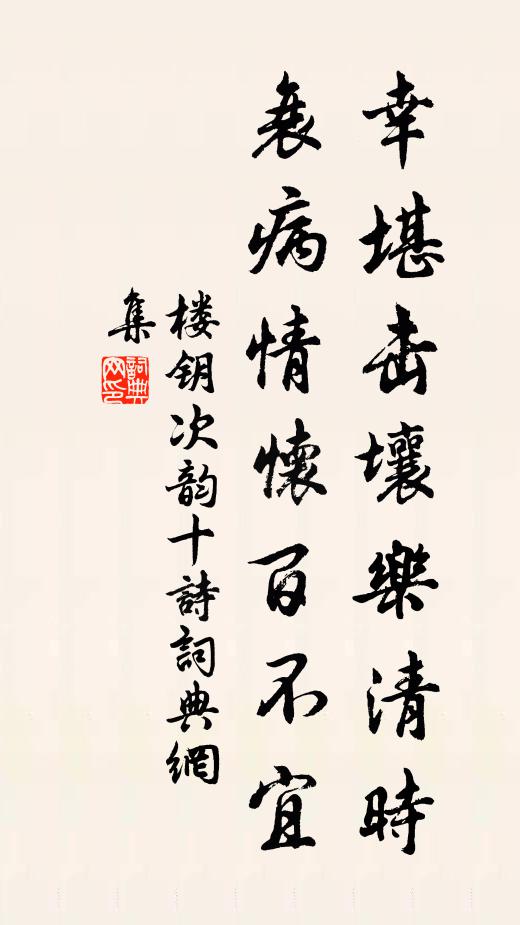 幸堪击壤樂清時
衰病情懷百不宜
楼钥次韵十詩詞典網
集
詞典网印